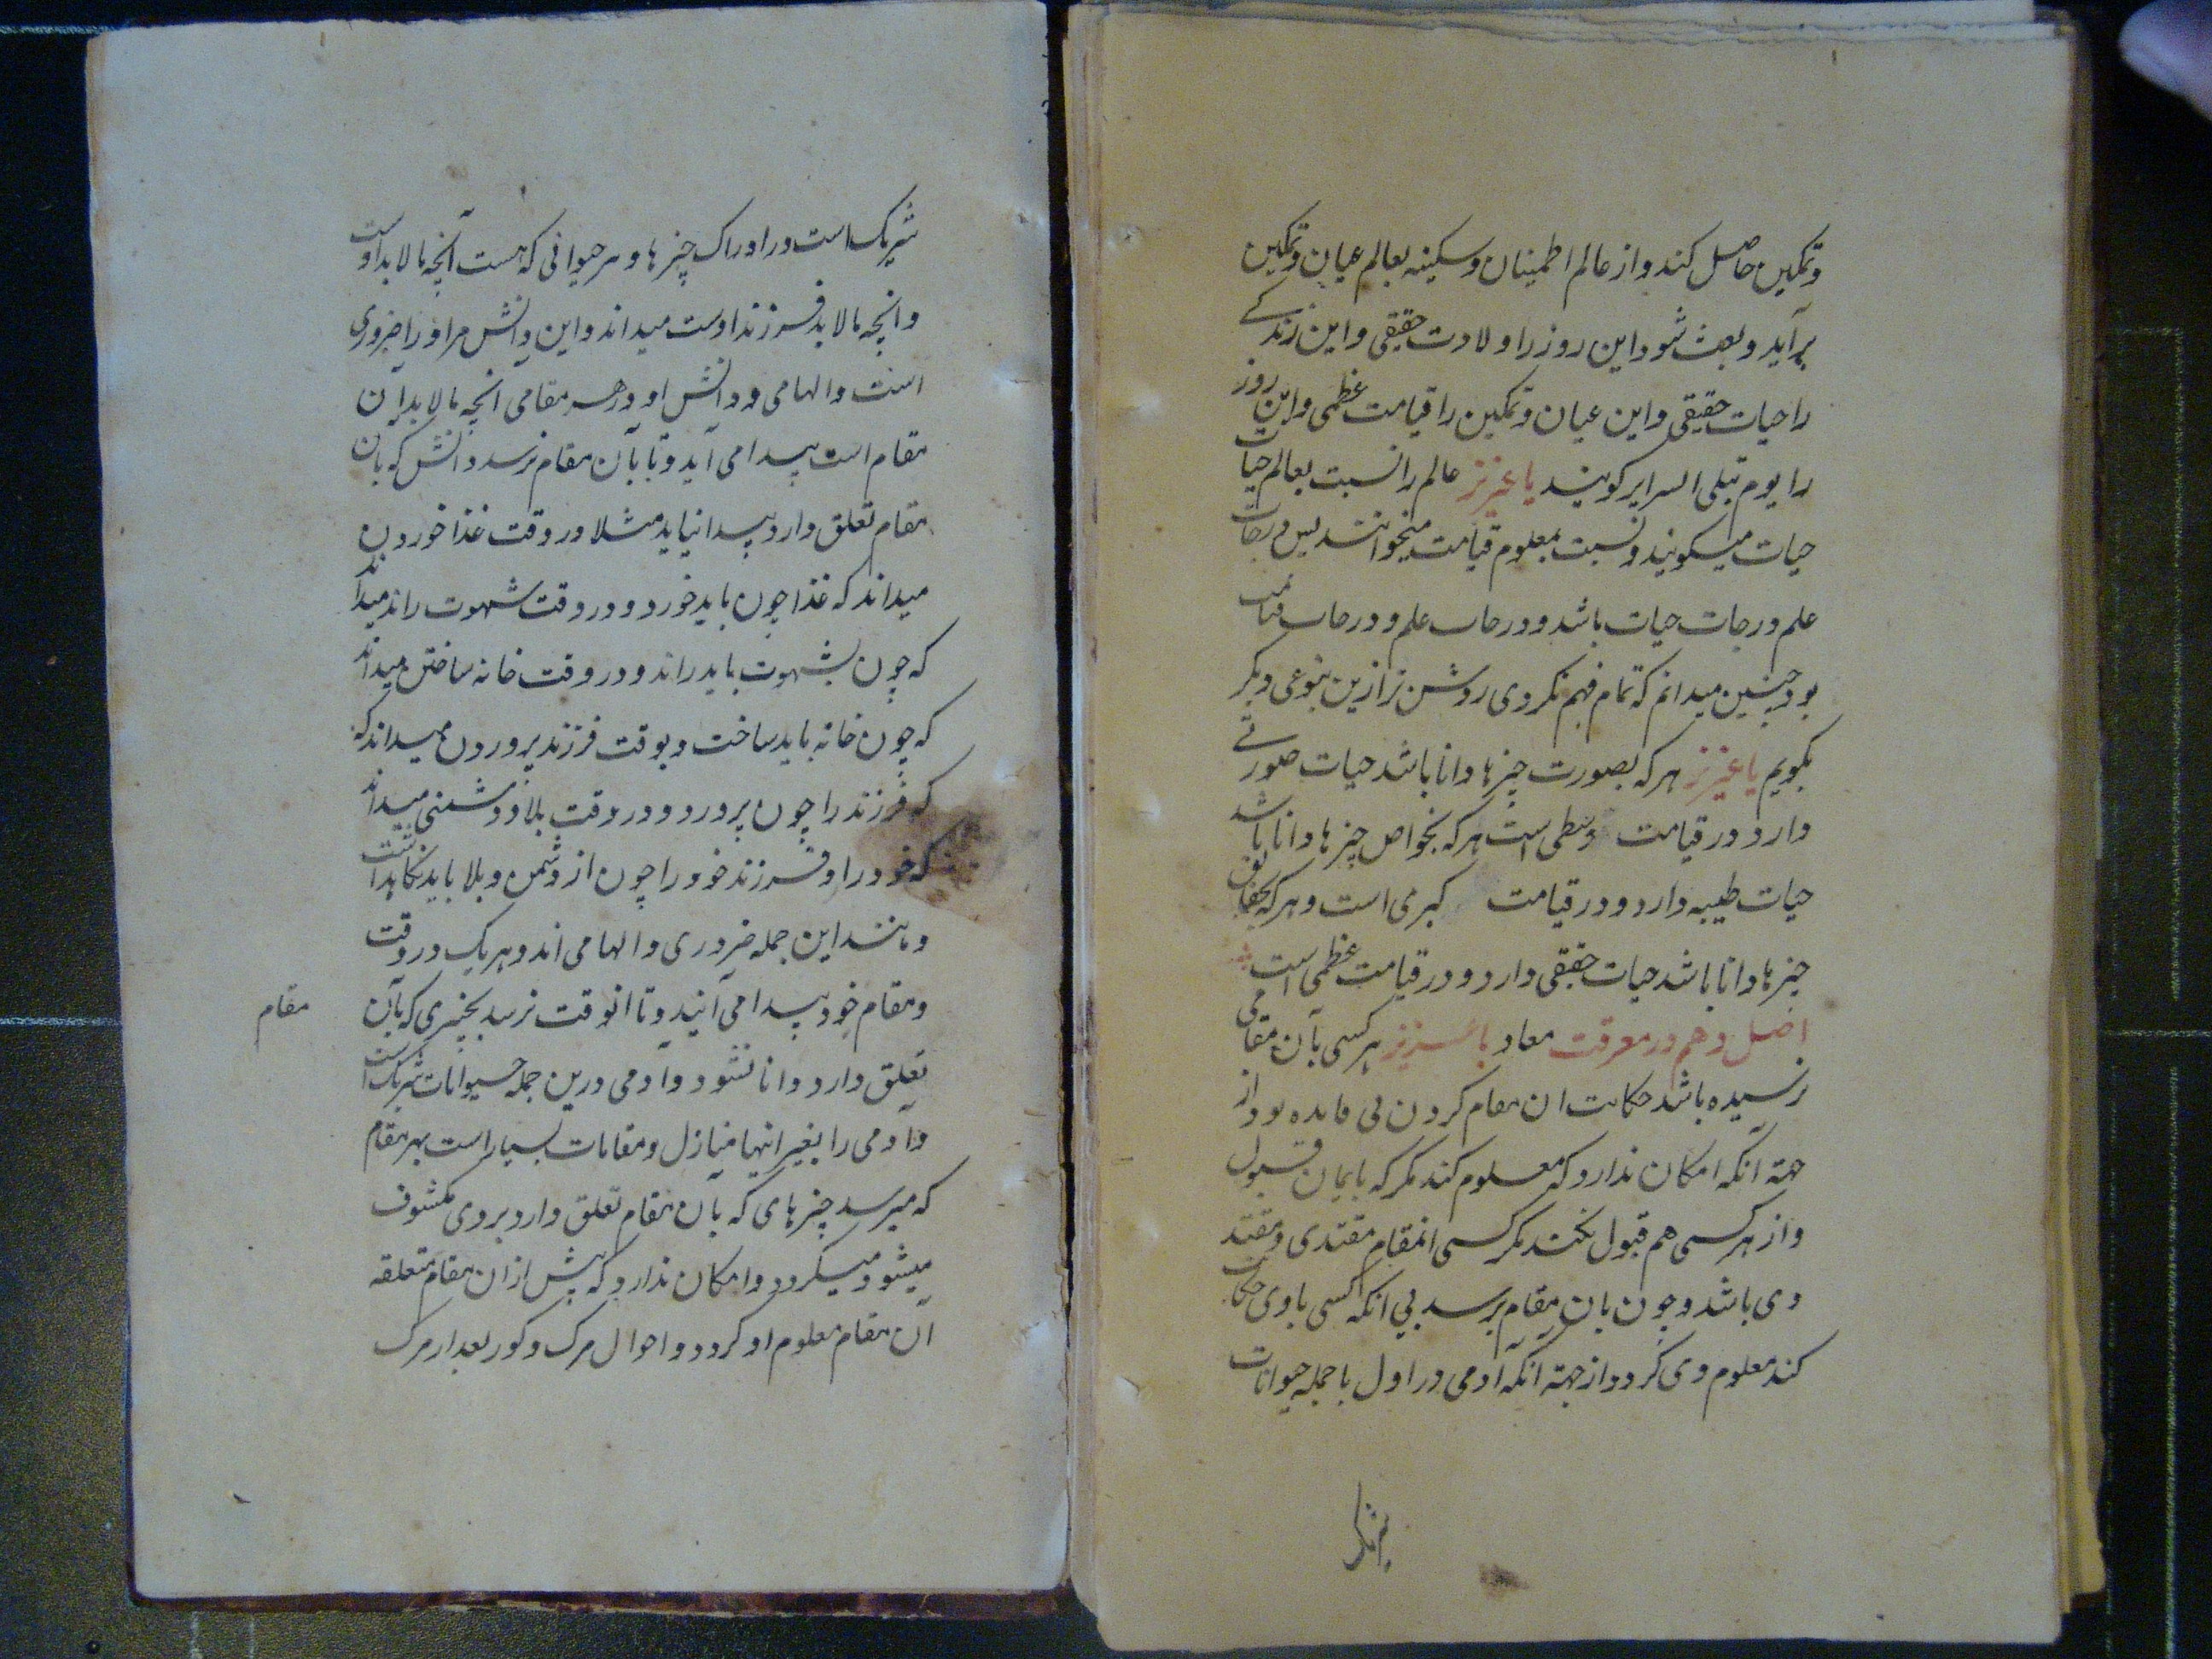 وتمکین حاصل کند و از عالم اطمینان و سکینه بعالم عیان و تمکین
برآید و بعث شود این روز را ولادت حقیقی و این زندگی
را حیات حقیقی و این عیان و تمکین را قیامت عظمی و این روز
را یوم تبلی السرایر کویند یا عزیز عالم را نسبت بعالم حیات
حیات میکویند و نسبت بمعلوم قیامت میخوانند پس درجات
علم درجات حیات باشد و درجات علم و درجات قیامت
بود چنین میدانم که تمام فهم نکردی روشن تر ازین بنوعی دیکر
بکویم یا عزیز هر که بصورت چیزها دانا باشد حیات صورتی
دارد و در قیامت وسطی است هر که بخواص چیزها دانا باشد
حیات طیبه دارد و در قیامت کبری است و هر که بحقایق
چیزها دانا باشد حیات حقیقی دارد و در قیامت عظمی است
اصل دهم در معرفت معاد یا عزیز هر کسی بآن مقامی
نرسیده باشد حکایت ان مقام کردن بی فایده بود از
جهته آنکه امکان ندارد که معلوم کند مکر که بایمان قبول
و از هر کسی هم قبول نکند مکر کسی انمقام مقتدی و مقتد
وی باشد و چون بان مقام برسد بی انکه کسی با وی حکایت
کند معلوم وی کردد از جهته انکه آدمی در اول با جمله حیوانات
شریک است در ادراک چیزها و هر حیوانی که هست آنچه مالابد اوست
وانچه مالابد فرزند اوست میداند و این دانش مر او را ضروری
است و الهامی و دانش او در هر مقامی آنچه مالابد آن
مقام است پیدا می آید و تا بآن مقام نرسد دانش که بان
مقام تعلق دارد پیدا نیاید مثلا در وقت غذا خوردن
میداند که غذا چون باید خورد و در وقت شهوت راند میداند
که چون شهوت باید راند و در وقت خانه ساختن میداند
که چون خانه باید ساخت و بوقت فرزند پروردن میداند که
که فرزند را چون پرورد و در وقت بلا و دشمنی میداند
که خود را و فرزند خود را چون از دشمن و بلا باید نکاهداشت
و مانند این جمله ضروری و الهامی اند و هر یک در وقت
و مقام خود پیدا می آیند و تا انوقت نرسد بچیزی که بآن
مقام
تعلق دارد دانا نشود و آدمی درین جمله حیوانات شریک است
و آدمی را بغیر اینها منازل و مقامات بسیار است بهر مقام
که میرسد چیزهای که بآن مقام تعلق دارد بروی مکشوف
میشود و میکردد و امکان ندارد که پیش از ان مقام متعلقه
آن مقام معلوم او کردد و احوال مرک و کور بعد از مرک